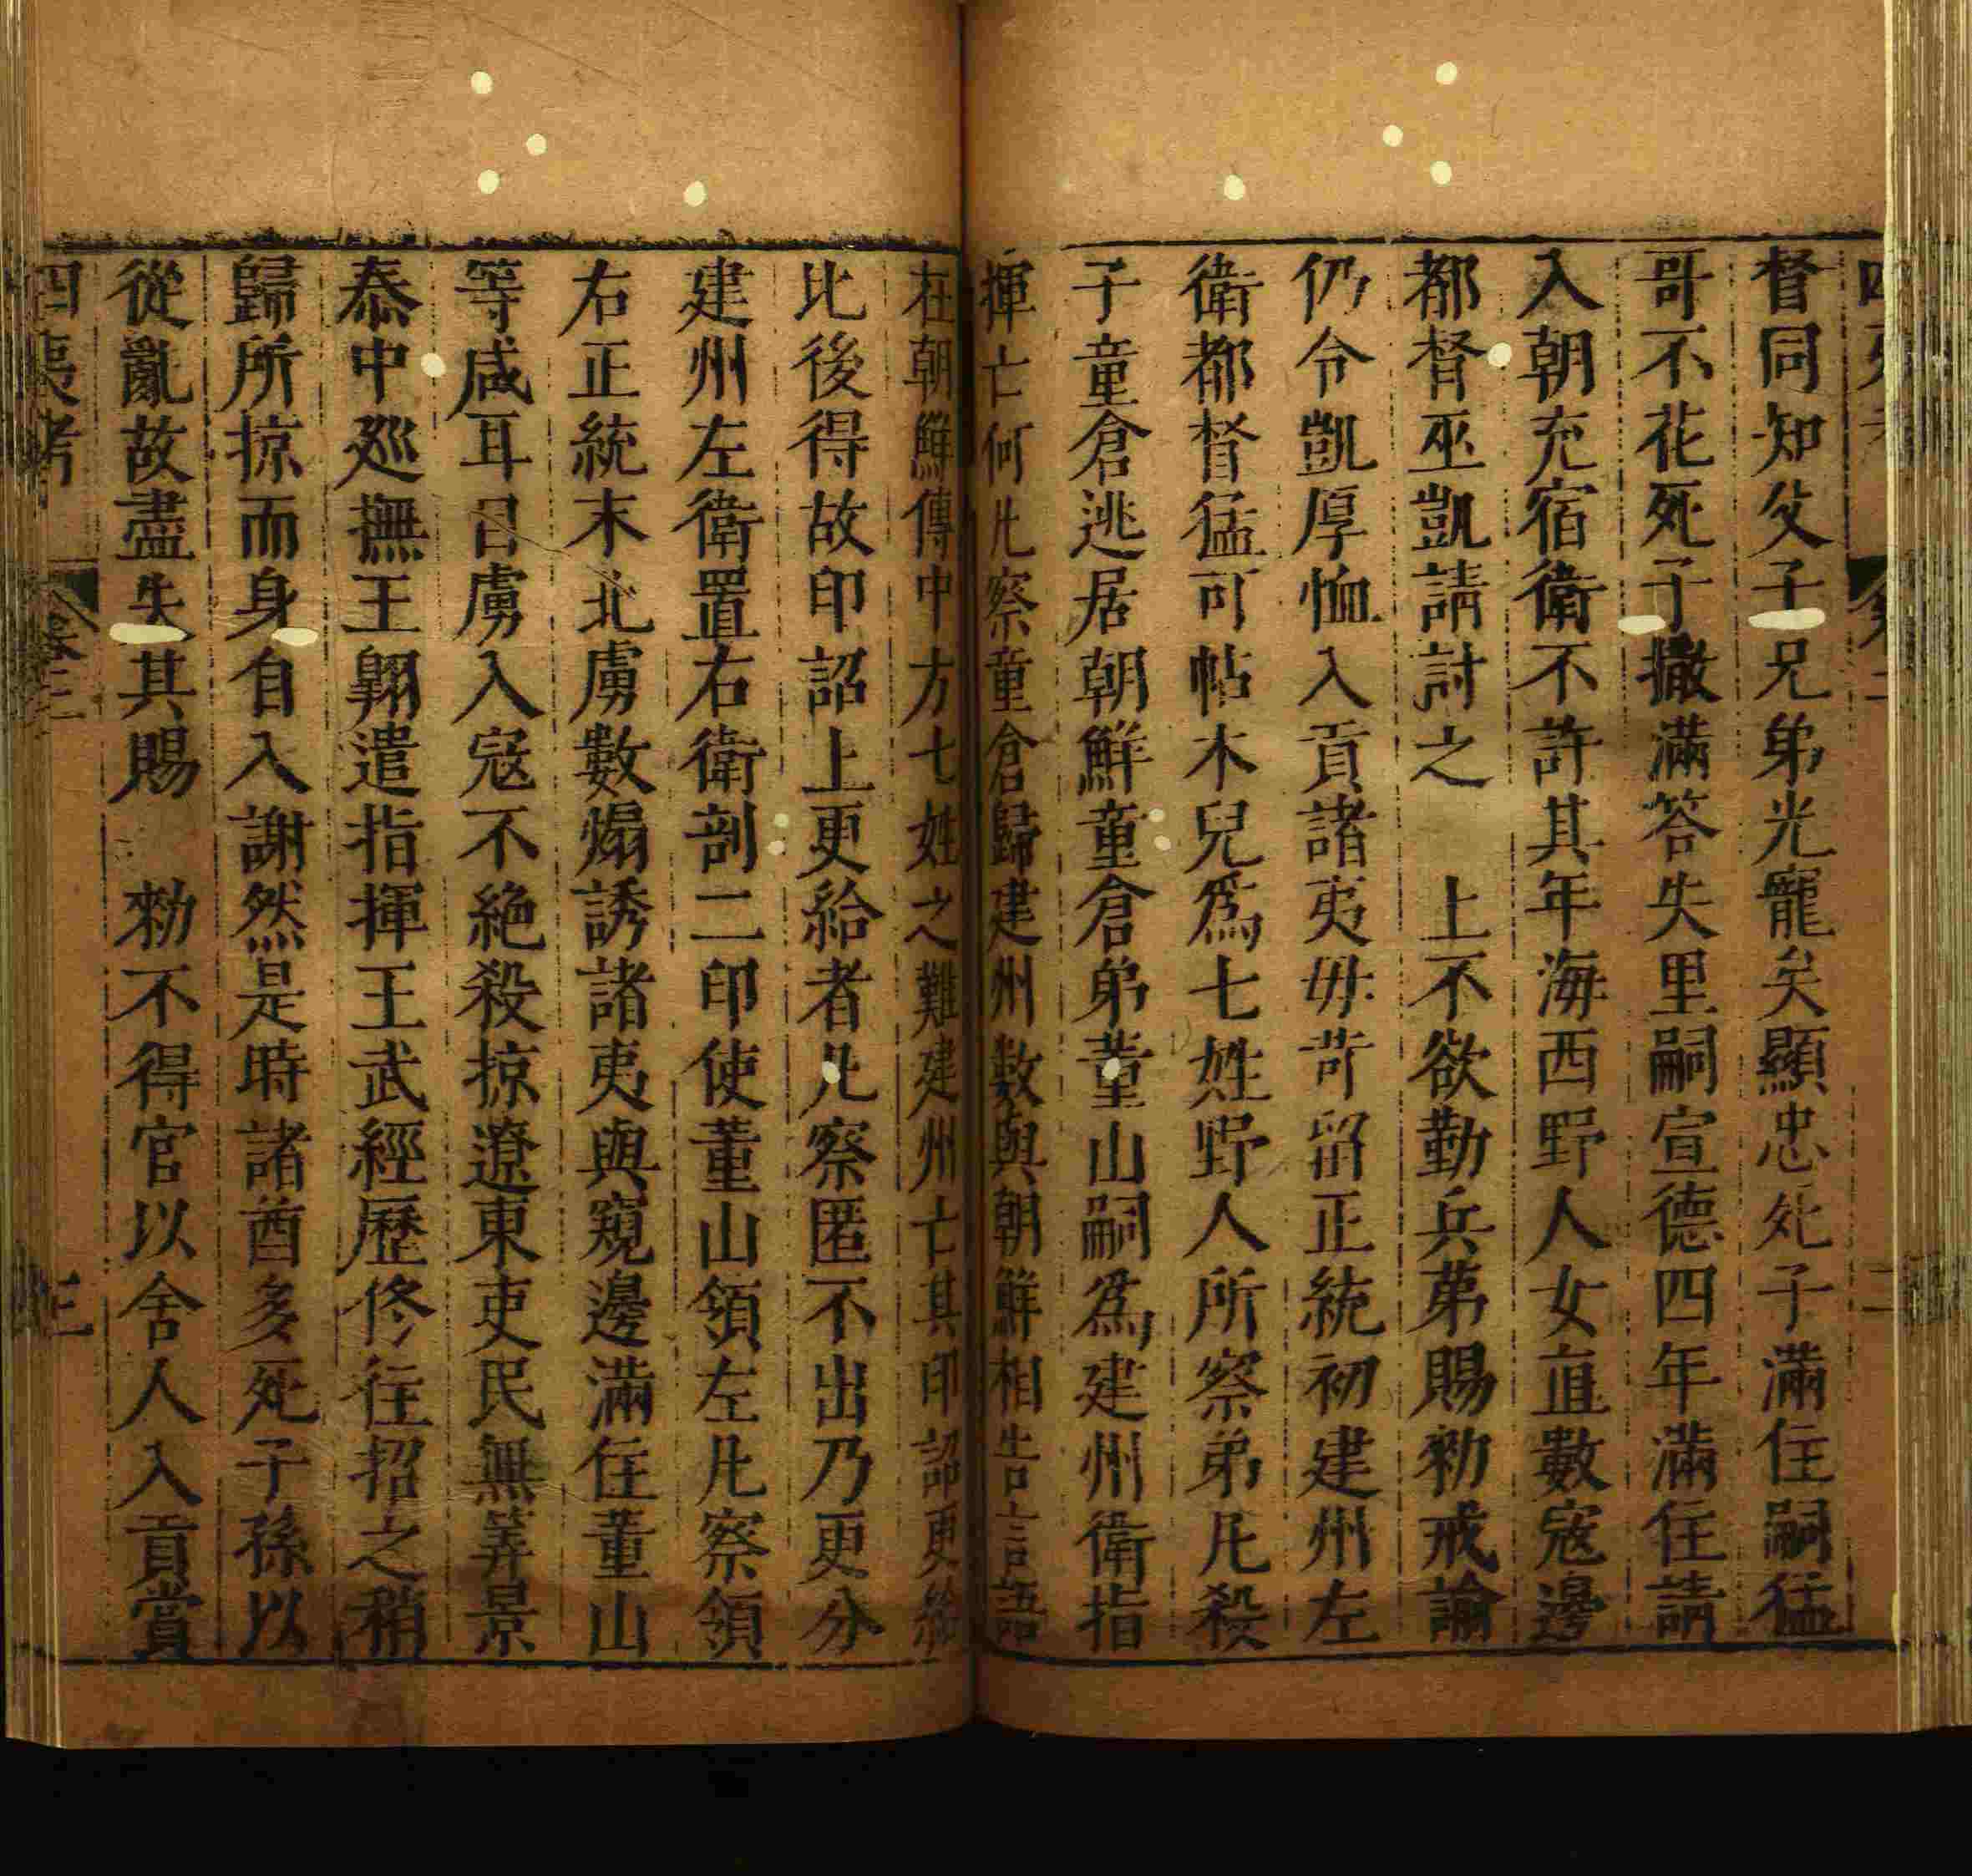 督同知父子兄弟光寵矣顯忠死子滿住嗣猛
哥不花死子撒滿答失里嗣宣德四年滿住請
入朝充宿衛不許其年海西野人女直數寇邊
都督巫凱請討之 上不欲勤兵苐賜勑戒諭
仍令凱厚恤入貢諸夷毋苛留正統初建州左
衛都督猛可帖木兒爲七姓野人所察弟凡殺
子童倉逃居朝鮮童倉弟董山嗣爲建州衛指
揮亡何凡察童倉歸建州數與朝鮮相告言語
在朝鮮傳中方七姓之難建州亡其印詔更給
比後得故印詔上更給者凡察匿不出乃更分
建州左衛置右衛剖二印使董山領左凡察領
右正統末北虜數煽誘諸夷與窺邊滿住董山
等咸耳目虜入寇不絶殺掠遼東吏民無筭景
泰中巡撫王翺遣指揮王武經歷佟往招之稍
歸所掠而身自入謝然是時諸酋多死子孫以
從亂故盡失其賜 勑不得官以舍人入貢賞
四夷考
卷三
三